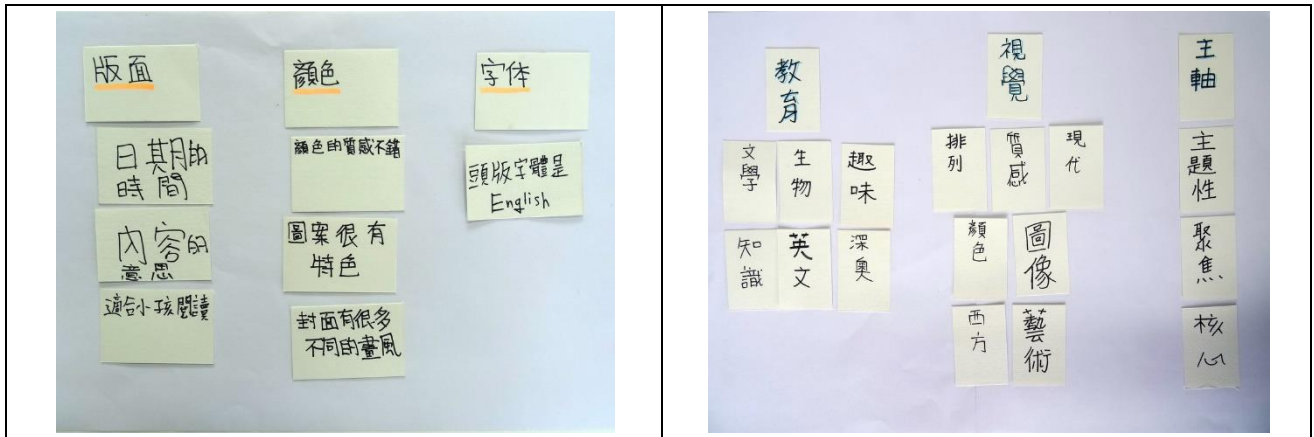 版面
日期的
時間
內容的
意思
適合小孩閱讀
顏色
顏色的質感不錯
圖案很有
特色
封面有很多
不同的畫風
字体
頭版字體是
English
教育
文學
生物
趣味
知識
英文
深奧
視覺
排列
質感
現代
顏色
圖像
西方
藝術
主軸
主題性
聚焦
核心